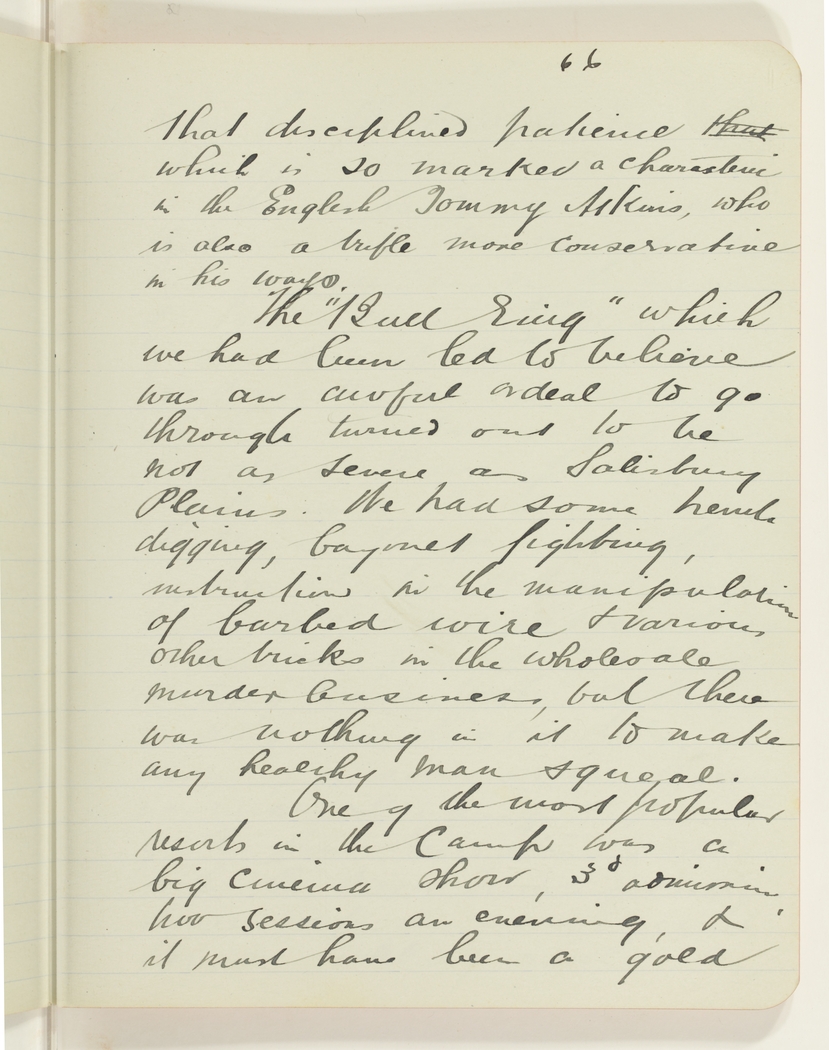 66
that disciplined patience that
which is so marked a characteristic
in the English Tommy Atkins, who
is also a trifle more conservative
in his ways.
The "Bull Ring" which
we had been led to believe
was an awful ordeal to go
through turned out to be
not as severe as Salisbury
Plains. We had some trench
digging, bayonet fighting,
instruction in the manipulation
of barbed wire & various
other tricks in the wholesale
murder business, but there
was nothing in it to make
any healthy man squeal.
One of the most popular
resorts in the Camp was a
big cinema show, 3d admission,
two sessions an evening, &
it must have been a gold